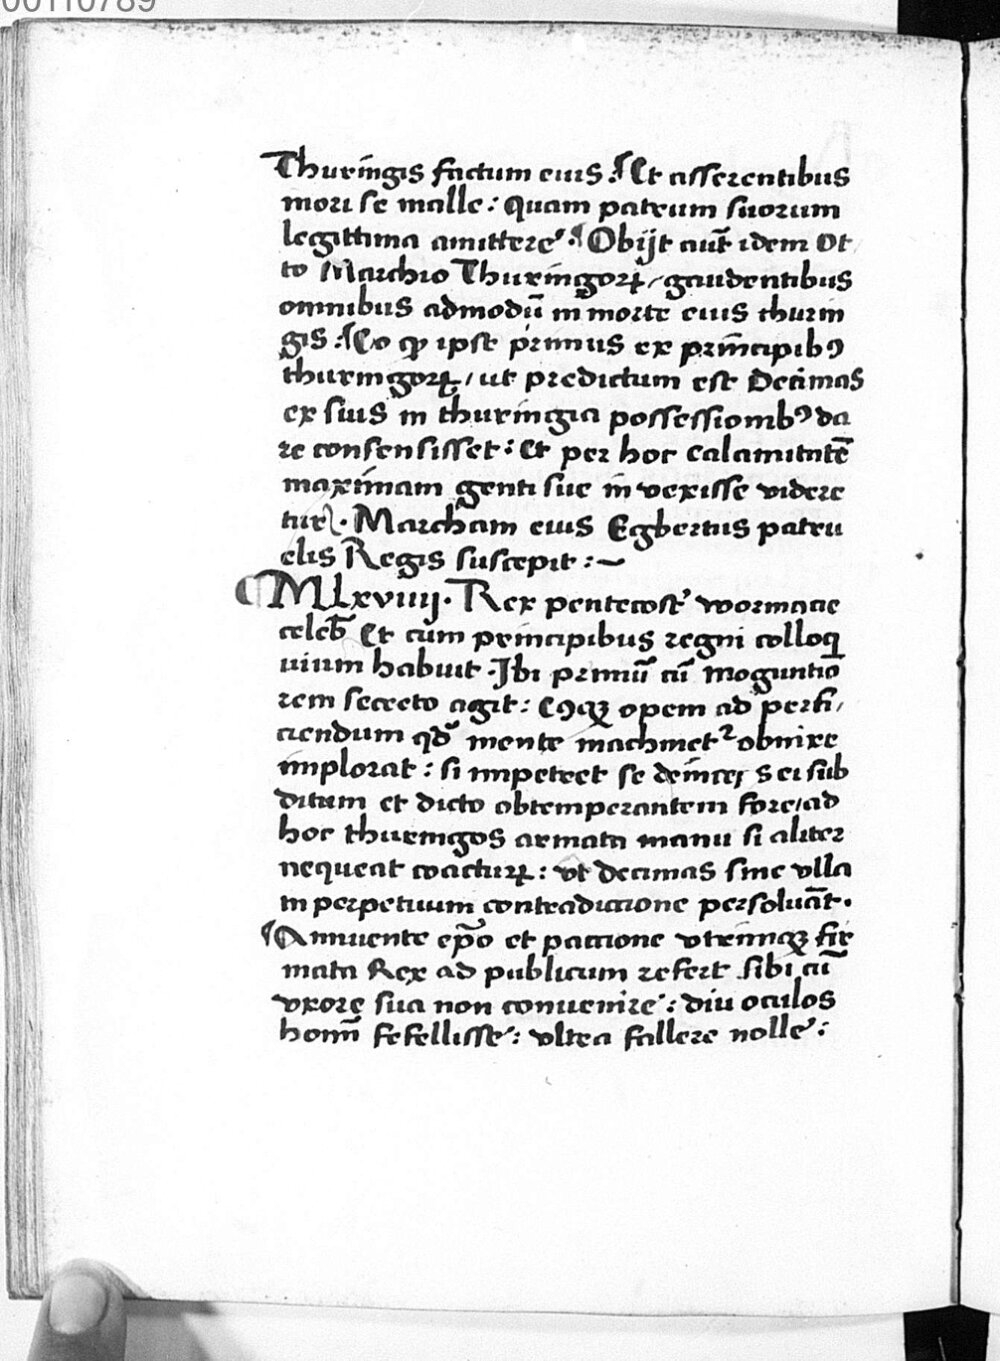 00110789
Thuringis factum eius :¶ Et asserentibus
mori se malle : quam patrum suorum
legittima amittere. ¶ Obijt aut̄ idem Ot
to Marchio Thuringorꝝ / gaudentibus
omnibus admodū in morte eius thurin
gis :¶ Eo ꝙ ipse primus ex prīncipibꝰ
thuringorꝝ / ut predictum est Decimas
ex suis in thuringia possessionibꝰ da
re consensisset : Et per hoc calamitatē
maximam genti sue in vexisse videre
tur. Marcham eius Egbertus patru
elis Regis suscepit :~
¶ Mlxviiij. Rex pentecost̄ wormacie
celeb̄ Et cum principibus regni colloq
uium habuit. Ibi primū cū moguntio
rem secreto agit : Eꝰqꝫ opem ad perfi/
ciendum qd̄ mente machinetᷣ obnixe
implorat : si impetret se deinceps ei sub
ditum et dicto obtemperantem fore / ad
hoc thuringos armata manu si aliter
nequeat coacturꝝ : vt decimas sine vlla
in perpetuum contradiccione persoluāt.
¶ Annuente ep̄o et paccione vtrimqꝫ fir
mata Rex ad publicum refert sibi cū
vxore sua non conuenire : diu oculos
homī fefellisse : vltra fallere nolle :